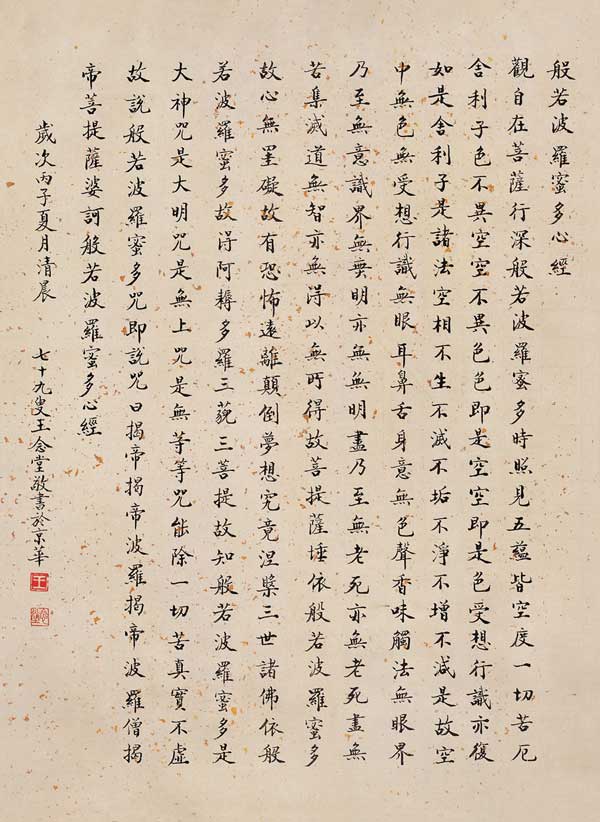 般若波羅蜜多心經
觀自在菩薩行深般若波羅蜜多時照見五蘊皆空度一切苦厄
舍利子色不異空空不異色色即是空空即是色受想行識亦復
如是舍利子是諸法空相不生不滅不垢不淨不增不減是故空
中無色無受想行識無眼耳鼻舌身意無色聲香味觸法無眼界
乃至無意識界無無明亦無無明盡乃至無老死亦無老死盡無
苦集滅道無智亦無得以無所得故菩提薩埵依般若波羅蜜多
故心無罣礙故有恐怖遠離顛倒夢想究竟涅槃三世諸佛依般
若波羅蜜多故得阿耨多羅三藐三菩提故知般若波羅蜜多是
大神咒是大明咒是無上咒是無等等咒能除一切苦真實不虛
故說般若波羅蜜多咒即說咒曰揭帝揭帝波羅揭帝波羅僧揭
帝菩提薩婆訶般若波羅蜜多心經
歲次丙子夏月清晨 七十九叟王念堂敬書於京華
王